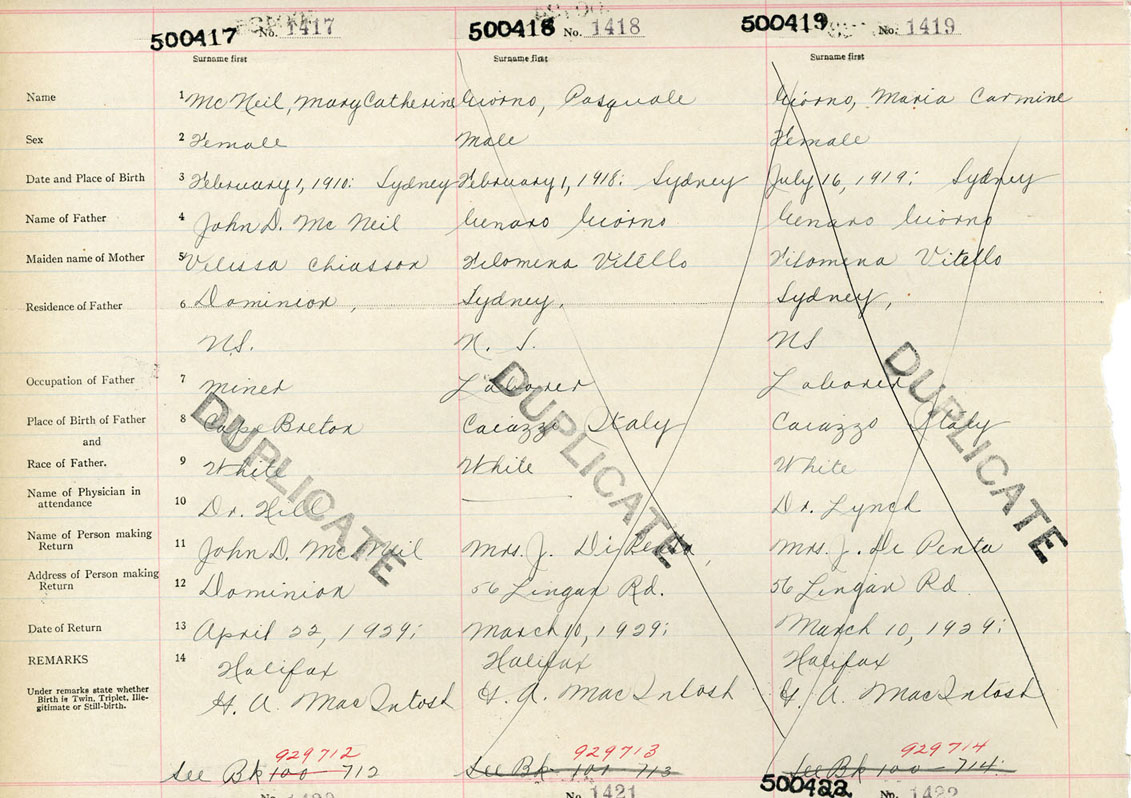 500417 No. 1417 500418 No. 1418 500419 No. 1419
Surname first Surname first Surname first
Name 1 McNeil, Mary Catherine Giorno, Pasquale Giorno, Maria Carmine
Sex 2 Female Male Female
Date and Place of Birth 3 February 1, 1910: Sydney February 1, 1918: Sydney July 16, 1919: Sydney
Name of Father 4 John D. McNeil Genaro Giorno Genaro Giorno
Maiden name of Mother 5 Velissa Chiasson Filomena Vitello Filomena Vitello
Residence of Father 6 Dominion, Sydney, Sydney,
N.S. N. S. NS
Occupation of Father 7 Miner Laborer Laborer
Place of Birth of Father 8 Cape Breton Caiazzo Italy Caiazzo Italy
and
Race of Father. 9 White White White
Name of Physician in
attendance 10 Dr. Hill Dr. Lynch
Name of Person making
Return 11 John D. McNeil Mrs. J. DiPenta, Mrs. J. De Penta
Address of Person making
Return 12 Dominion 56 Lingan Rd. 56 Lingan Rd.
Date of Return 13 April 22, 1929: March 10, 1929: March 10, 1929:
REMARKS 14 Halifax Halifax Halifax
Under remarks state whether
Birth is Twin, Triplet, Ille-
gitimate or Still-birth.
H. A. MacIntosh H. A. MacIntosh H. A. MacIntosh
DUPLICATE DUPLICATE DUPLICATE
929712 929713 929714
See Bk 100 - 712 See Bk 101 713 See Bk 100 - 714.
500422
No. 1421 No. 1422